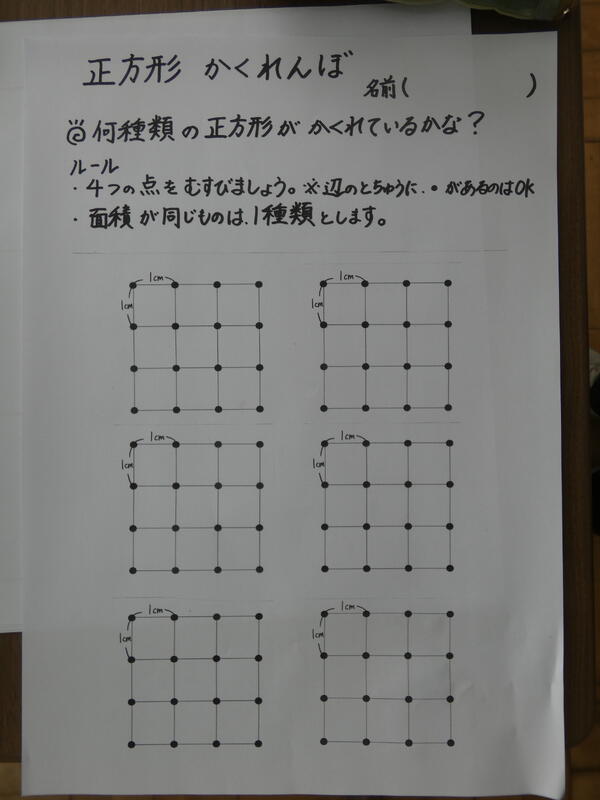 正方形 かくれんぼ
名前(　　　　)
何種類の正方形がかくれているかな?
ルール
・4つの点をむすびましょう。※辺のとちゅうに.・があるのはOK
・面積が同じものは.1種類とします。
1cm 1cm
1cm 1cm
1cm 1cm
1cm 1cm
1cm 1cm
1cm 1cm